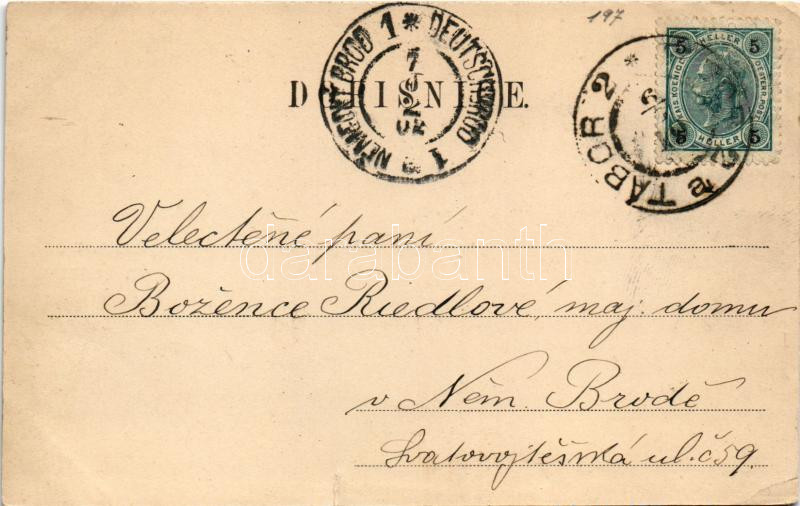 197
DOPISNICE.
NĚMECKÝ BROD 1 * DEUTSCHBROD 1
TÁBOR 2 *
5 HELLER 5
KAIS. KOENIGL. OESTERR. POST
5 HELLER 5
Velectěné paní
Božence Riedlové, maj. domu
v Něm. Brodě
Svatovojtěšská ul. č 59.
darabanth